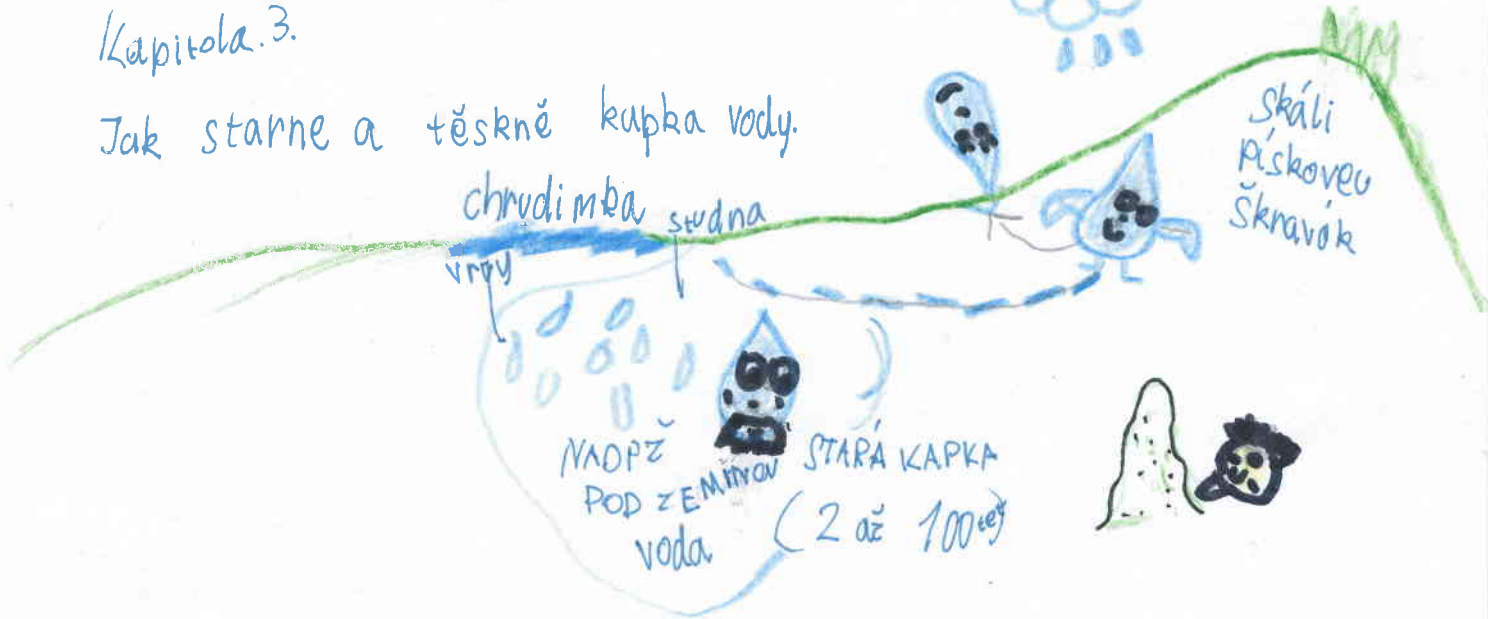 Kapitola.3.
Jak starne a těskně kapka vody.
chrudimka
studna
vrty
skáli
pískovcu
škravók
NADPŽ
POD ZEMNNOV
voda
STARÁ KAPKA
(2 až 100 let)